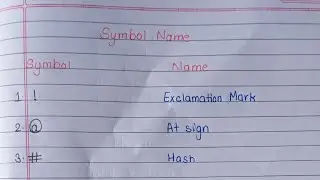 Symbol Name
Symbol Name
1. ! Exclamation Mark
2. @ At sign
3. # Hash